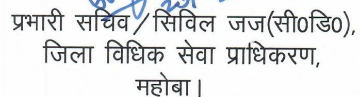 प्रभारी सचिव/सिविल जज(सी0डि0),
जिला विधिक सेवा प्राधिकरण,
महोबा।